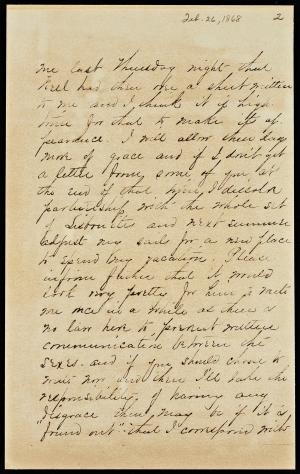 Feb. 26, 1868 2
me last Thursday night that
had there one a sheet written
to me and I think it is high
time for that to make its ap
pearance. I will allow three days
more of grace and if I don't get
a letter from some of you at
the end of that time, dissolve
partnership with the whole set
of Lisbonites and next summer
adjust my sails for a new place
to spend my vacation. Please
inform father that it would
look very pretty for him to write
me once in a while as there is
no law here to prevent written
communication between the
sexes. and if you should chose to
write now and then I'll take the
responsibility of having any
"disgrace there may be if it is
found out" that I correspond with